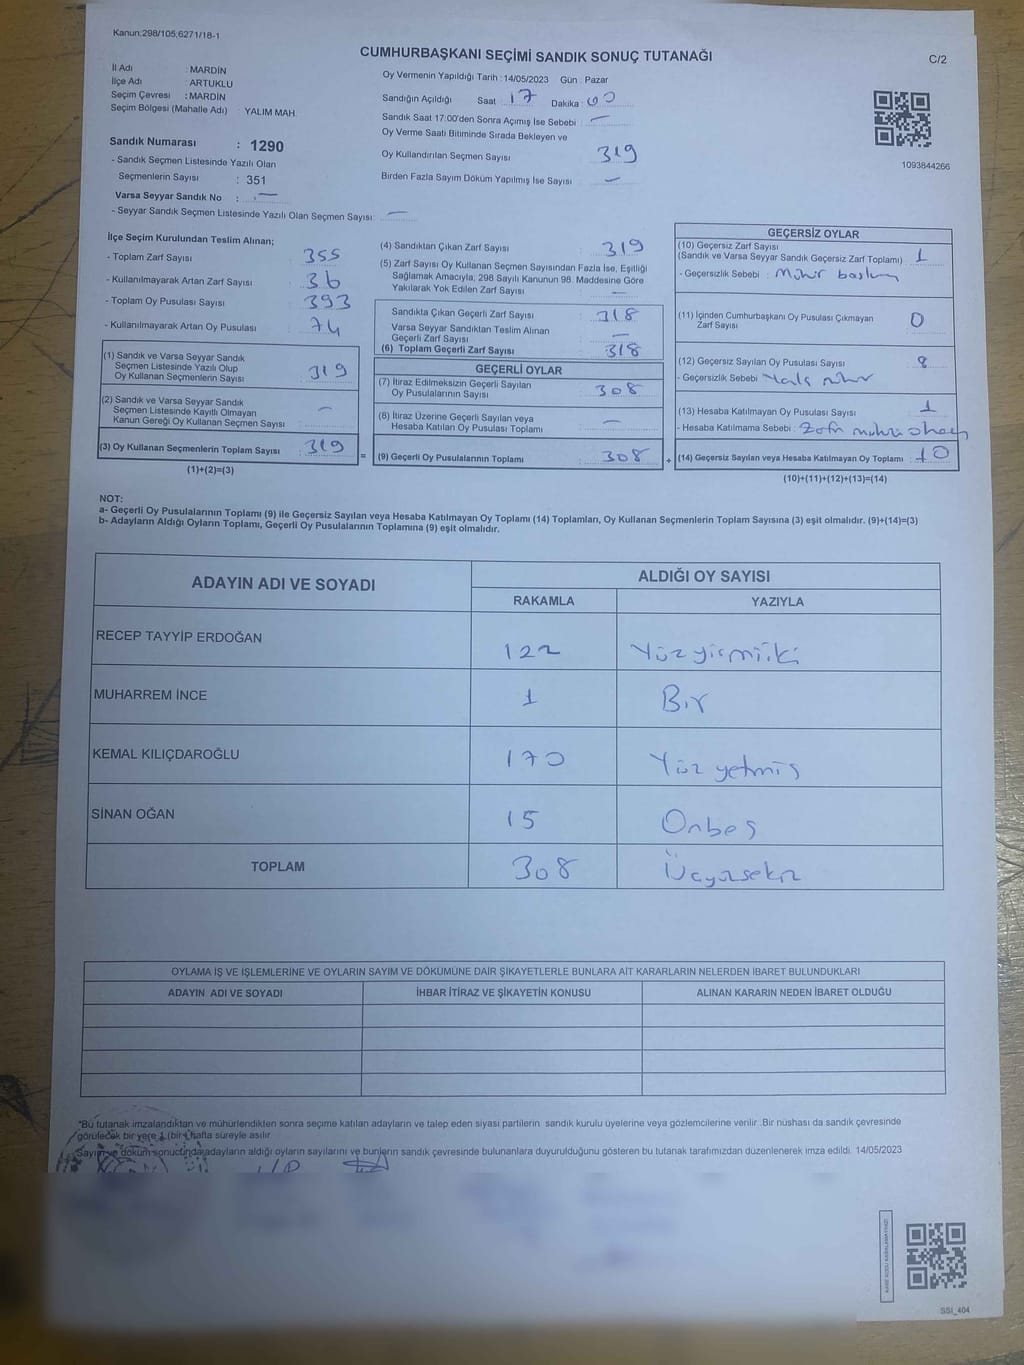 Kanun:298/105;6271/18-1
CUMHURBAŞKANI SEÇİMİ SANDIK SONUÇ TUTANAĞI
C/2
İl Adı : MARDİN
İlçe Adı : ARTUKLU
Seçim Çevresi : MARDİN
Seçim Bölgesi (Mahalle Adı) YALIM MAH.
Sandık Numarası : 1290
- Sandık Seçmen Listesinde Yazılı Olan
Seçmenlerin Sayısı : 351
Varsa Seyyar Sandık No : —
- Seyyar Sandık Seçmen Listesinde Yazılı Olan Seçmen Sayısı: —
Oy Vermenin Yapıldığı Tarih : 14/05/2023 Gün : Pazar
Sandığın Açıldığı Saat 17 Dakika 00
Sandık Saat 17:00'den Sonra Açımış İse Sebebi : —
Oy Verme Saati Bitiminde Sırada Bekleyen ve
Oy Kullandırılan Seçmen Sayısı 319
Birden Fazla Sayım Döküm Yapılmış İse Sayısı —
1093844266
İlçe Seçim Kurulundan Teslim Alınan;
- Toplam Zarf Sayısı : 355
- Kullanılmayarak Artan Zarf Sayısı : 36
- Toplam Oy Pusulası Sayısı : 393
- Kullanılmayarak Artan Oy Pusulası : 74
(1) Sandık ve Varsa Seyyar Sandık
Seçmen Listesinde Yazılı Olup
Oy Kullanan Seçmenlerin Sayısı : 319
(2) Sandık ve Varsa Seyyar Sandık
Seçmen Listesinde Kayıtlı Olmayan
Kanun Gereği Oy Kullanan Seçmen Sayısı : —
(3) Oy Kullanan Seçmenlerin Toplam Sayısı : 319
(1)+(2)=(3)
=
(4) Sandıktan Çıkan Zarf Sayısı : 319
(5) Zarf Sayısı Oy Kullanan Seçmen Sayısından Fazla İse, Eşitliği
Sağlamak Amacıyla; 298 Sayılı Kanunun 98. Maddesine Göre
Yakılarak Yok Edilen Zarf Sayısı : —
Sandıkta Çıkan Geçerli Zarf Sayısı : 318
Varsa Seyyar Sandıktan Teslim Alınan
Geçerli Zarf Sayısı : —
(6) Toplam Geçerli Zarf Sayısı : 318
GEÇERLİ OYLAR
(7) İtiraz Edilmeksizin Geçerli Sayılan
Oy Pusulalarının Sayısı : 308
(8) İtiraz Üzerine Geçerli Sayılan veya
Hesaba Katılan Oy Pusulası Toplamı : —
(9) Geçerli Oy Pusulalarının Toplamı : 308
+
GEÇERSİZ OYLAR
(10) Geçersiz Zarf Sayısı
(Sandık ve Varsa Seyyar Sandık Geçersiz Zarf Toplamı) : 1
- Geçersizlik Sebebi : Mühür
(11) İçinden Cumhurbaşkanı Oy Pusulası Çıkmayan
Zarf Sayısı : 0
(12) Geçersiz Sayılan Oy Pusulası Sayısı : 8
- Geçersizlik Sebebi
(13) Hesaba Katılmayan Oy Pusulası Sayısı : 1
- Hesaba Katılmama Sebebi :
(14) Geçersiz Sayılan veya Hesaba Katılmayan Oy Toplamı : 10
(10)+(11)+(12)+(13)=(14)
NOT:
a- Geçerli Oy Pusulalarının Toplamı (9) ile Geçersiz Sayılan veya Hesaba Katılmayan Oy Toplamı (14) Toplamları, Oy Kullanan Seçmenlerin Toplam Sayısına (3) eşit olmalıdır. (9)+(14)=(3)
b- Adayların Aldığı Oyların Toplamı, Geçerli Oy Pusulalarının Toplamına (9) eşit olmalıdır.
ADAYIN ADI VE SOYADI
ALDIĞI OY SAYISI
RAKAMLA YAZIYLA
RECEP TAYYİP ERDOĞAN 122 Yüz yirmi iki
MUHARREM İNCE 1 Bir
KEMAL KILIÇDAROĞLU 170 Yüz yetmiş
SİNAN OĞAN 15 Onbeş
TOPLAM 308 Üçyüzsekiz
OYLAMA İŞ VE İŞLEMLERİNE VE OYLARIN SAYIM VE DÖKÜMÜNE DAİR ŞİKAYETLERLE BUNLARA AİT KARARLARIN NELERDEN İBARET BULUNDUKLARI
ADAYIN ADI VE SOYADI İHBAR İTİRAZ VE ŞİKAYETİN KONUSU ALINAN KARARIN NEDEN İBARET OLDUĞU
"Bu tutanak imzalandıktan ve mühürlendikten sonra seçime katılan adayların ve talep eden siyasi partilerin sandık kurulu üyelerine veya gözlemcilerine verilir .Bir nüshası da sandık çevresinde
görülecek bir yere 1 (bir) hafta süreyle asılır.
Sayım ve döküm sonucunda adayların aldığı oyların sayılarını ve bunların sandık çevresinde bulunanlara duyurulduğunu gösteren bu tutanak tarafımızdan düzenlenerek imza edildi. 14/05/2023
SSI_404